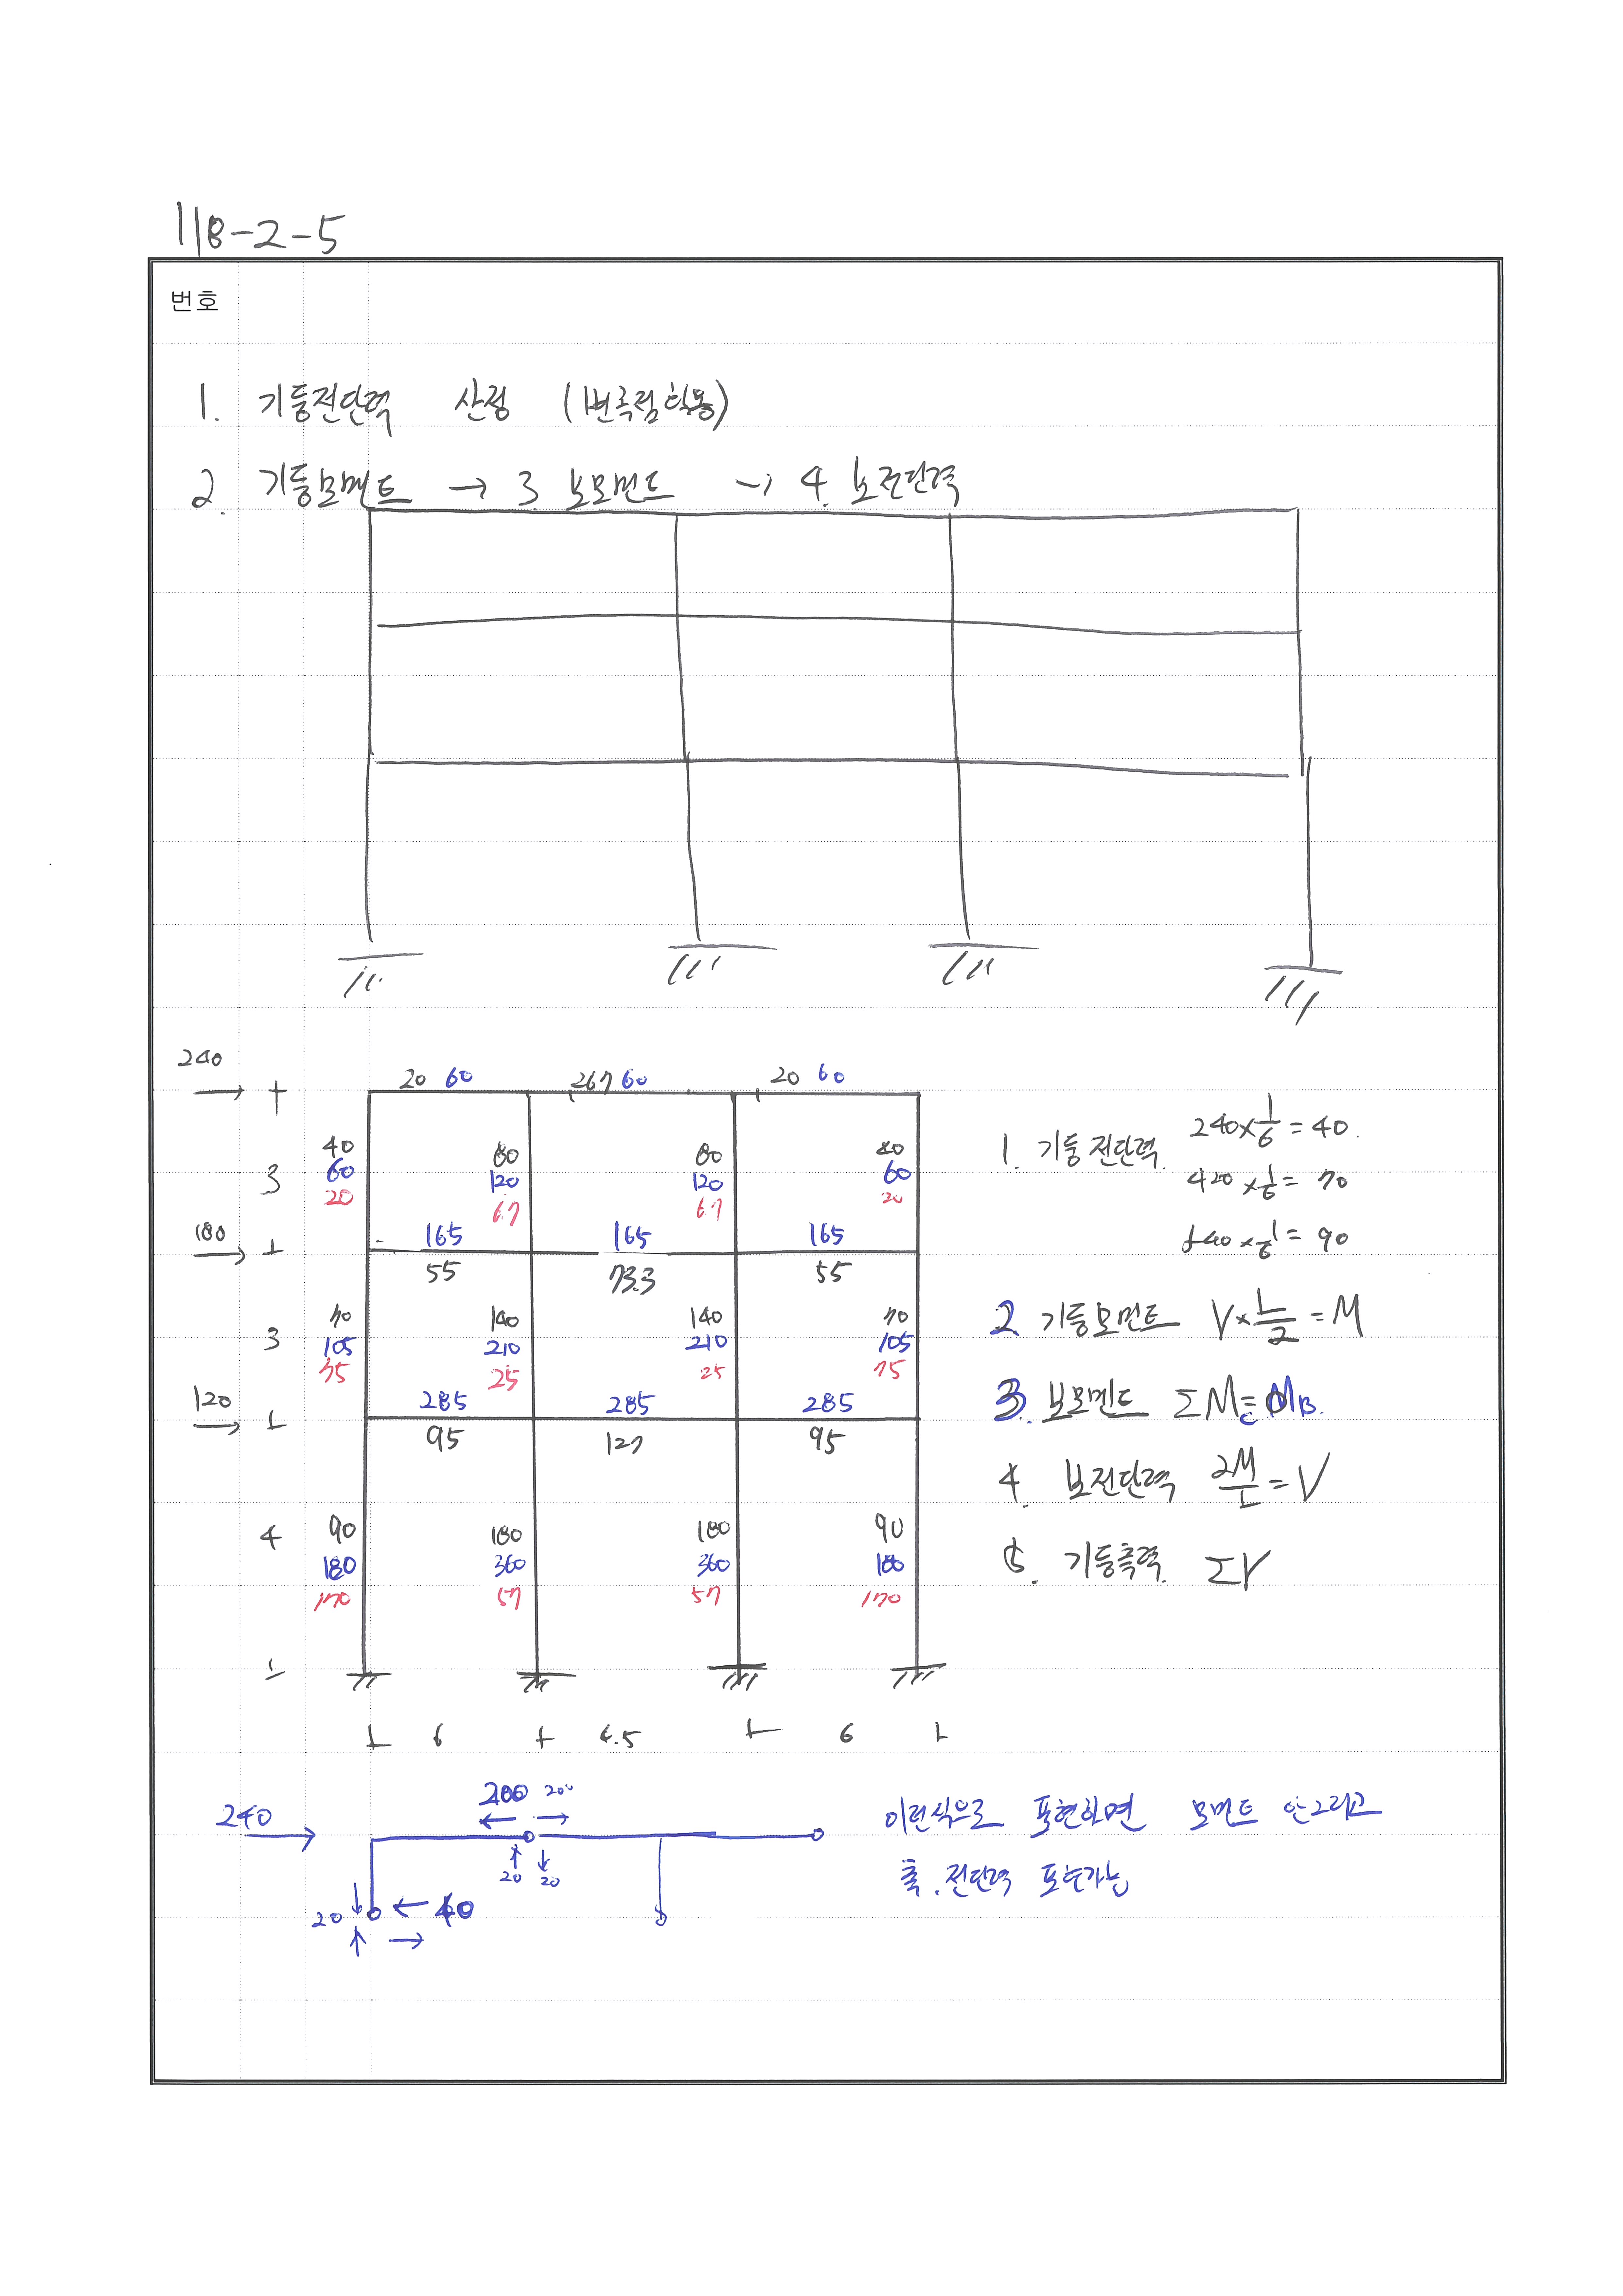 118-2-5
번호
1. 기둥전단력 산정 (변곡점 활용)
2. 기둥모멘트 → 3 보모멘트 → 4. 보전단력
240
20 60 26.7 60 20 60
40 80 80 40
3 60 120 120 60
20 6.7 6.7 20
1. 기둥전단력 240×1/6 = 40.
420×1/6 = 70
540×1/6 = 90
180
165 165 165
55 73.3 55
70 140 140 70
3 105 210 210 105
75 25 25 75
2 기둥모멘트 V×L/2 = M
120
285 285 285
95 127 95
3. 보모멘트
4. 보전단력 2M/L = V
4 90 180 180 90
180 360 360 180
170 57 57 170
5. 기둥축력 ΣV
6 4.5 6
240
200 200
20 20
20 40
이런식으로 표현하면 모멘트 안그리고
축.전단력 표현가능